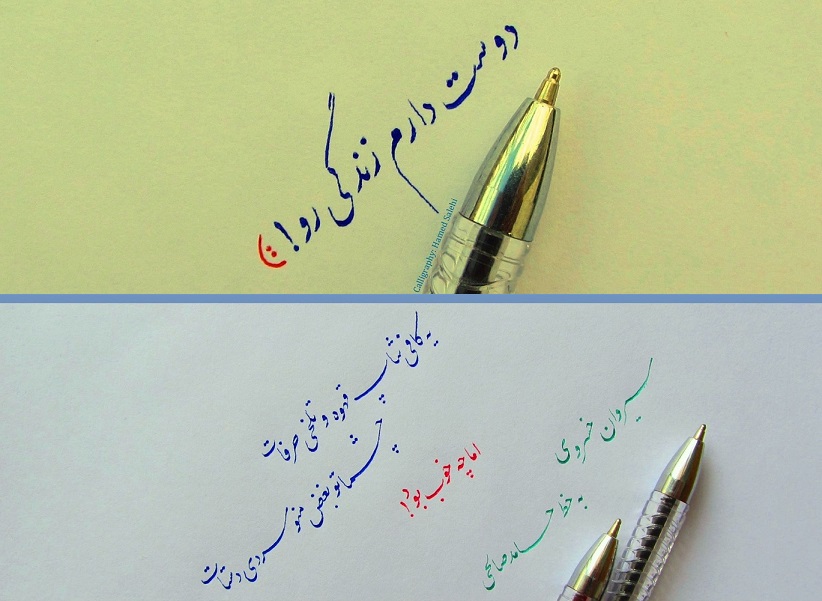 دوست دارم زندگی رو!
Calligraphy: Hamed Salehi
یه کافی‌شاپ
قهوه و تلخی حرفات
چشمای تو بغض منو سردی دستات
اما چه خوب بود!
سیروان خسروی
به خط حامد صالحی